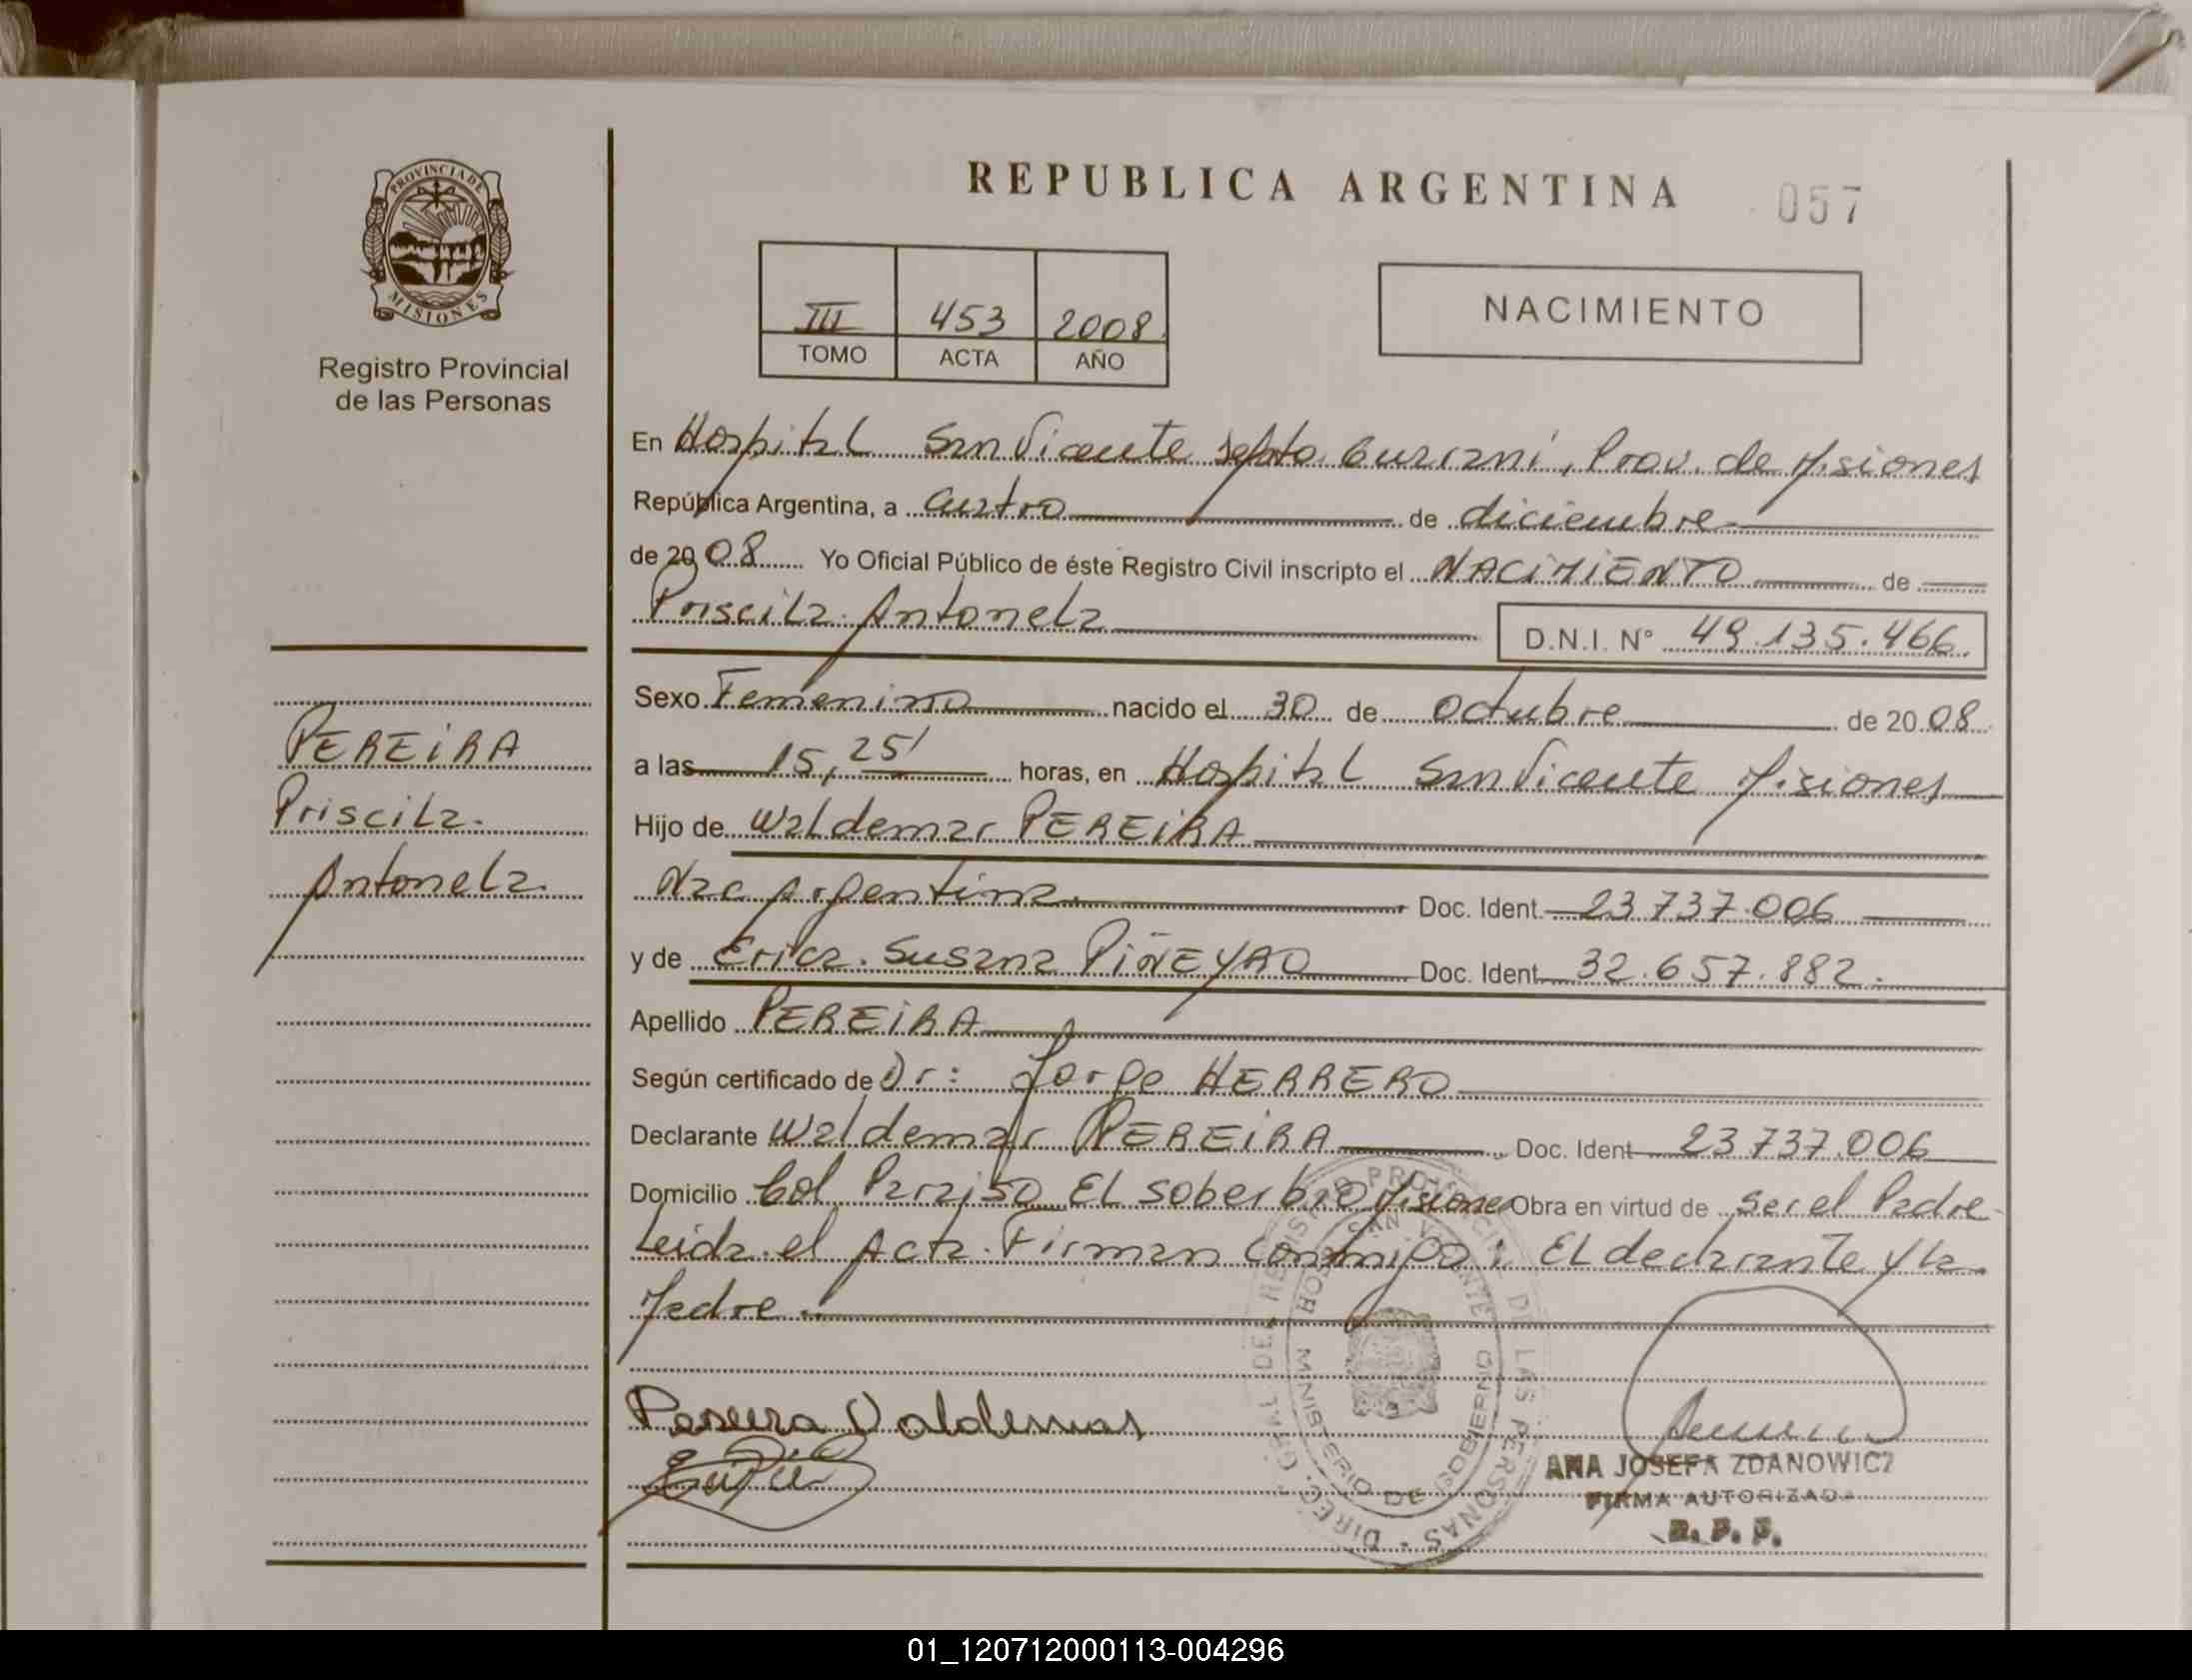 REPUBLICA ARGENTINA 057
PROVINCIA DE MISIONES
Registro Provincial
de las Personas
III 453 2008
TOMO ACTA AÑO
NACIMIENTO
En Hospital San Vicente Depto Guarani, Prov. de Misiones
República Argentina, a cuatro de diciembre
de 2008 Yo Oficial Público de éste Registro Civil inscripto el NACIMIENTO de
Priscila Antonela D.N.I. N° 49.135.466
Sexo Femenino nacido el 30 de octubre de 2008
a las 15,25' horas, en Hospital San Vicente Misiones
Hijo de Waldemar PEREIRA
Nac Argentina. Doc. Ident. 23.737.006
y de Erica Susana PIÑEYRO Doc. Ident 32.657.882.
Apellido PEREIRA
Según certificado de Dr: Jorge HERRERO
Declarante Waldemar PEREIRA Doc. Ident 23.737.006
Domicilio Col Paraiso El Soberbio Misiones Obra en virtud de ser el Padre
Leida el Acta Firman conmigo: El declarante y la
Madre.
PEREIRA
Priscila
Antonela
Pereira Valdemar
DIREC. GRAL. DEL REGISTRO PROVINCIAL DE LAS PERSONAS
HOSP. SAN VICENTE
MINISTERIO DE GOBIERNO
ANA JOSEFA ZDANOWICZ
FIRMA AUTORIZADA
R. P. P.
01_120712000113-004296